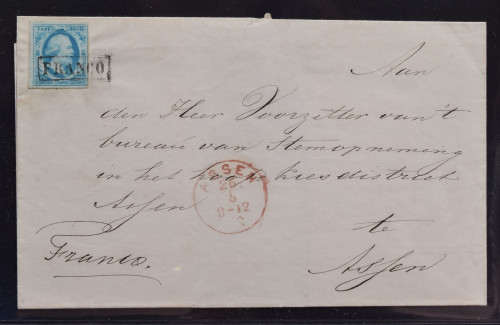 FRANCO
Aan
den Heer Voorzitter van't
bureau van Stemopneming
in het hoofd kiesdistrict
Assen
te
Assen
Franco.
ASSEN
26
5
8-12